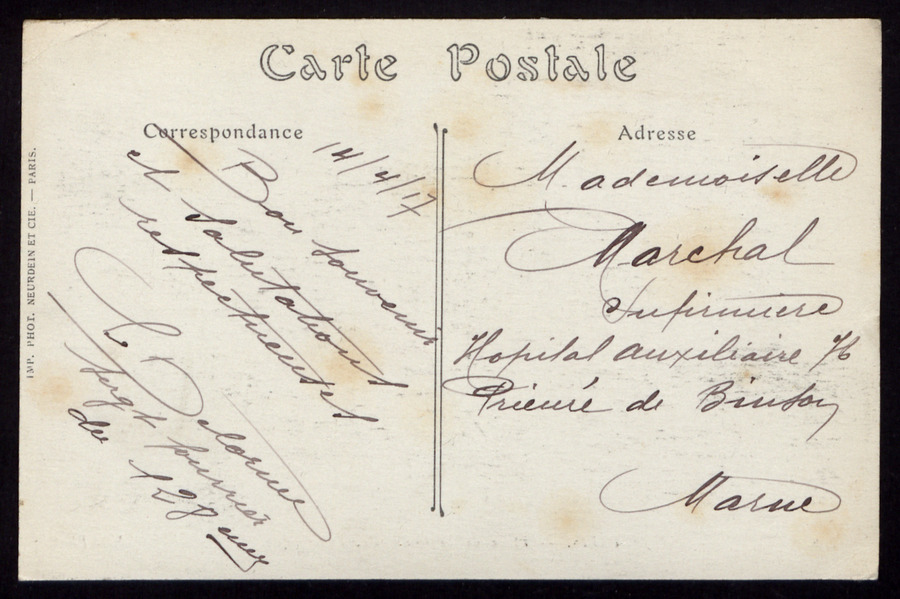 Carte Postale
Correspondance
14/4/17
Bon souvenir
et salutations
respectueuses
Delorme
Sergt fourrier
du 128 eme
Adresse
Mademoiselle
Marchal
Infirmiere
Hopital auxiliaire 76
Prieuré de Binson
Marne
IMP. PHOT. NEURDEIN ET CIE. — PARIS.